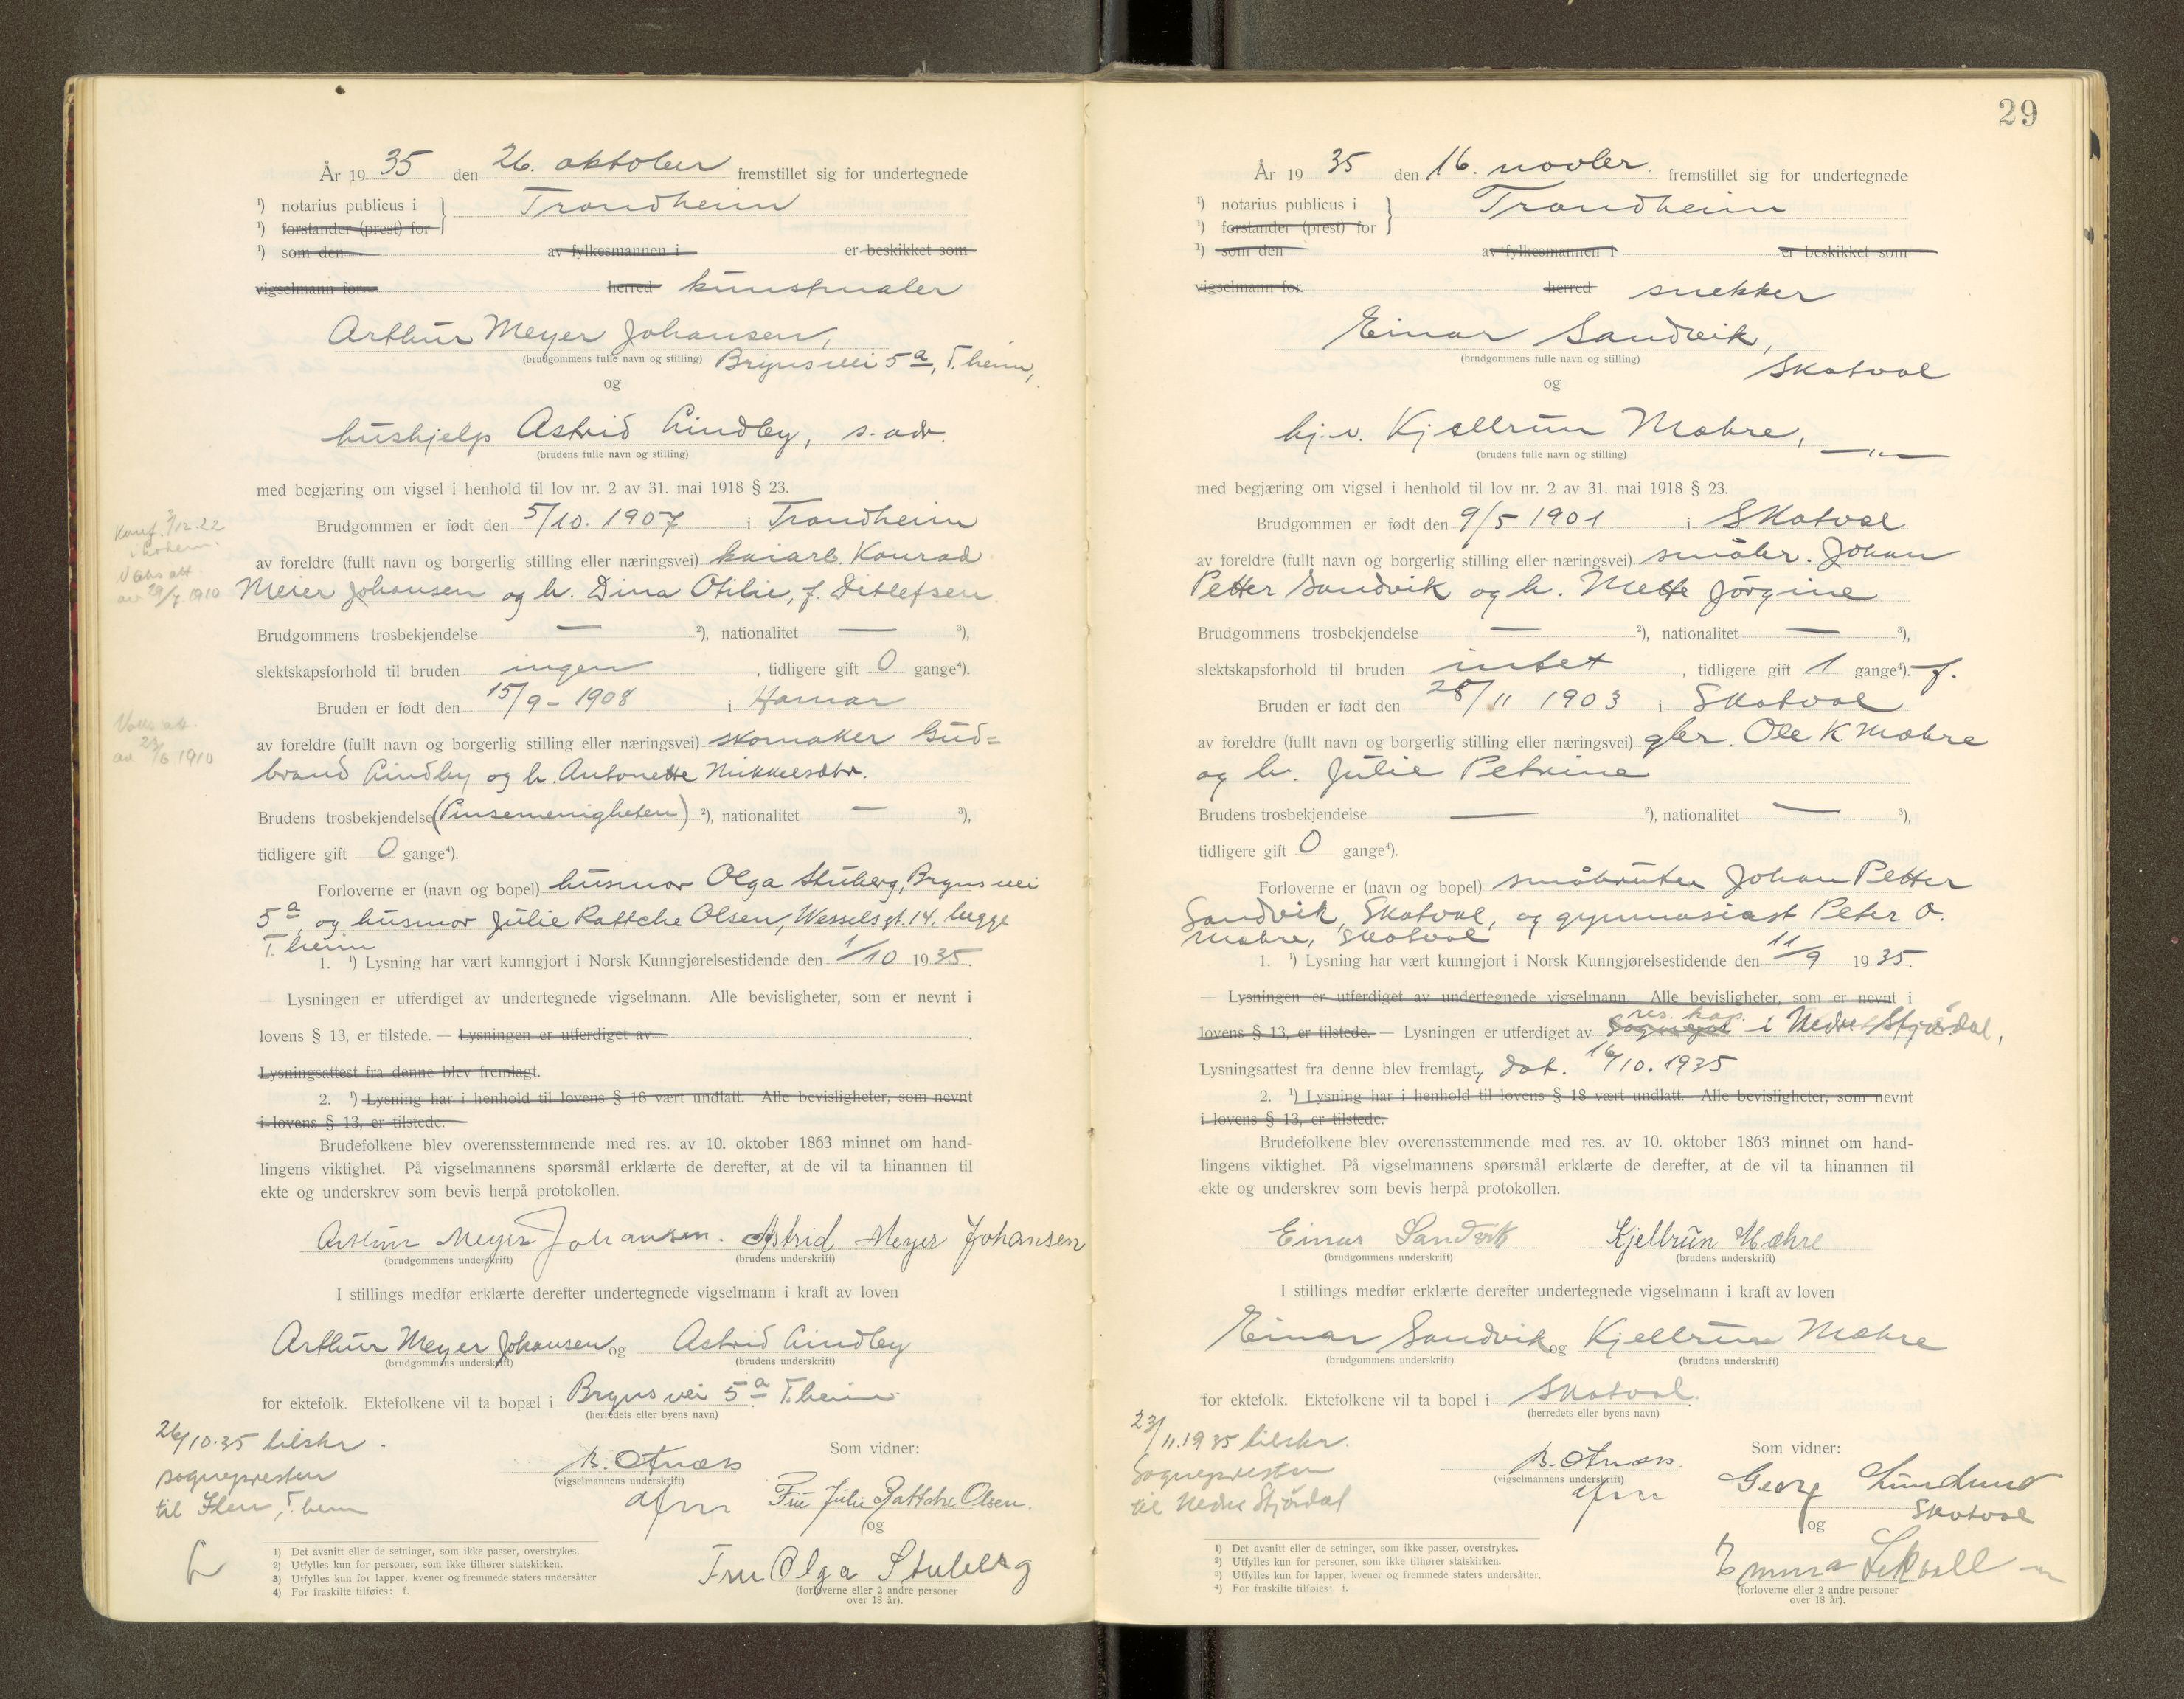 År 19 35 den 26. oktober fremstillet sig for undertegnede
¹) notarius publicus i } Trondheim
¹) forstander (prest) for
¹) som den av fylkesmannen i er beskikket som
vigselmann for herred kunstmaler
Arthur Meyer Johansen,
(brudgommens fulle navn og stilling) Brynsvei 5a, T.heim,
og
hushjelp Astrid Lindby, s. adr.
(brudens fulle navn og stilling)
med begjæring om vigsel i henhold til lov nr. 2 av 31. mai 1918 § 23.
Brudgommen er født den 5/10. 1907 i Trondheim
av foreldre (fullt navn og borgerlig stilling eller næringsvei) kaiarb. Konrad
Meier Johansen og h. Dina Otilie, f. Ditlefsen
Brudgommens trosbekjendelse — ²), nationalitet — ³),
slektskapsforhold til bruden ingen , tidligere gift 0 gange⁴).
Bruden er født den 15/9 - 1908 i Hamar
av foreldre (fullt navn og borgerlig stilling eller næringsvei) skomaker Gud=
brand Lindby og h. Antonette Mikkelsdtr.
Brudens trosbekjendelse (Pinsemenigheten) ²), nationalitet — ³),
tidligere gift 0 gange⁴).
Forloverne er (navn og bopel) husmor Olga Stuberg, Bryns vei
5a, og husmor Julie Rattche Olsen, Wesselsgt. 14, begge
T.heim
1. ¹) Lysning har vært kunngjort i Norsk Kunngjørelsestidende den 1/10 1935.
— Lysningen er utferdiget av undertegnede vigselmann. Alle bevisligheter, som er nevnt i
lovens § 13, er tilstede. — Lysningen er utferdiget av
Lysningsattest fra denne blev fremlagt.
2. ¹) Lysning har i henhold til lovens § 18 vært undlatt. Alle bevisligheter, som nevnt
i lovens § 13, er tilstede.
Brudefolkene blev overensstemmende med res. av 10. oktober 1863 minnet om hand-
lingens viktighet. På vigselmannens spørsmål erklærte de derefter, at de vil ta hinannen til
ekte og underskrev som bevis herpå protokollen.
Arthur Meyer Johansen. Astrid Meyer Johansen
(brudgommens underskrift) (brudens underskrift)
I stillings medfør erklærte derefter undertegnede vigselmann i kraft av loven
Arthur Meyer Johansen og Astrid Lindby
(brudgommens underskrift) (brudens underskrift)
for ektefolk. Ektefolkene vil ta bopæl i Bryns vei 5a T.heim
(herredets eller byens navn)
26/10.35 tilskr.
sognepresten
til Ilen, T.heim
Som vidner:
(vigselmannens underskrift)
Fru Julie Rattche Olsen.
og
Fru Olga Stuberg
(forloverne eller 2 andre personer
over 18 år).
1) Det avsnitt eller de setninger, som ikke passer, overstrykes.
2) Utfylles kun for personer, som ikke tilhører statskirken.
3) Utfylles kun for lapper, kvener og fremmede staters undersåtter
4) For fraskilte tilføies: f.
29
År 19 35 den 16. novbr. fremstillet sig for undertegnede
¹) notarius publicus i } Trondheim
¹) forstander (prest) for
¹) som den av fylkesmannen i er beskikket som
vigselmann for herred snekker
Einar Sandvik,
(brudgommens fulle navn og stilling) Skatval
og
hj.v. Kjellrun Mæhre, —"—
(brudens fulle navn og stilling)
med begjæring om vigsel i henhold til lov nr. 2 av 31. mai 1918 § 23.
Brudgommen er født den 9/5 1901 i Skatval
av foreldre (fullt navn og borgerlig stilling eller næringsvei) småbr. Johan
Petter Sandvik og h. Mette Jørgine
Brudgommens trosbekjendelse — ²), nationalitet — ³),
slektskapsforhold til bruden intet , tidligere gift 1 gange⁴). f.
Bruden er født den 28/11 1903 i Skatval
av foreldre (fullt navn og borgerlig stilling eller næringsvei) gbr. Ole K. Mæhre
og h. Julie Petrine
Brudens trosbekjendelse — ²), nationalitet — ³),
tidligere gift 0 gange⁴).
Forloverne er (navn og bopel) småbruker Johan Petter
Sandvik, Skatval, og gymnasiast Peter O.
Mæhre, Skatval
1. ¹) Lysning har vært kunngjort i Norsk Kunngjørelsestidende den 11/9 1935.
— Lysningen er utferdiget av undertegnede vigselmann. Alle bevisligheter, som er nevnt i
lovens § 13, er tilstede. — Lysningen er utferdiget av res. kap. i Nedre Stjørdal,
Lysningsattest fra denne blev fremlagt, dat. 16/10. 1935
2. ¹) Lysning har i henhold til lovens § 18 vært undlatt. Alle bevisligheter, som nevnt
i lovens § 13, er tilstede.
Brudefolkene blev overensstemmende med res. av 10. oktober 1863 minnet om hand-
lingens viktighet. På vigselmannens spørsmål erklærte de derefter, at de vil ta hinannen til
ekte og underskrev som bevis herpå protokollen.
Einar Sandvik Kjellrun Mæhre
(brudgommens underskrift) (brudens underskrift)
I stillings medfør erklærte derefter undertegnede vigselmann i kraft av loven
Einar Sandvik og Kjellrun Mæhre
(brudgommens underskrift) (brudens underskrift)
for ektefolk. Ektefolkene vil ta bopel i Skatval.
(herredets eller byens navn)
23/11.1935 tilskr.
Sognepresten
til Nedre Stjørdal
Som vidner:
(vigselmannens underskrift)
Georg
Skatval
og
Emma
(forloverne eller 2 andre personer
over 18 år).
¹) Det avsnitt eller de setninger, som ikke passer, overstrykes.
²) Utfylles kun for personer, som ikke tilhører statskirken.
³) Utfylles kun for lapper, kvener og fremmede staters undersåtter.
⁴) For fraskilte tilføies: f.